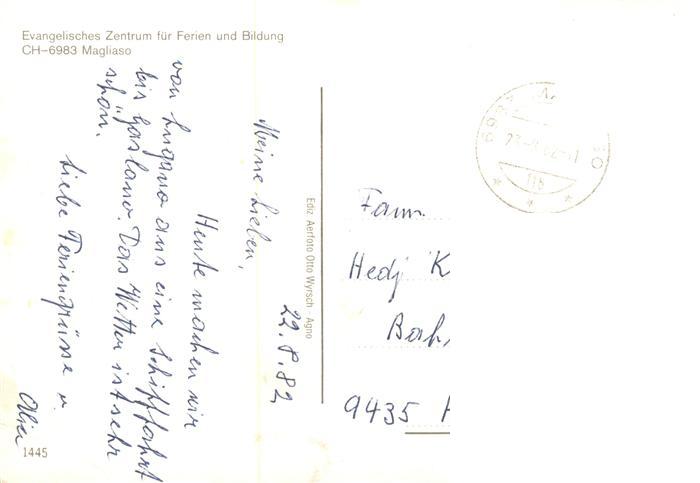 Evangelisches Zentrum für Ferien und Bildung
CH-6983 Magliaso
22.8.82
Meine Lieben,
Heute machen wir
von Lugano aus eine Schiffahrt
bis
Das Wetter ist sehr
schön.
Liebe Feriengrüsse u.
Ediz Aerfoto Otto Wyrsch - Agno
Fam.
Hedj K
9435
1445